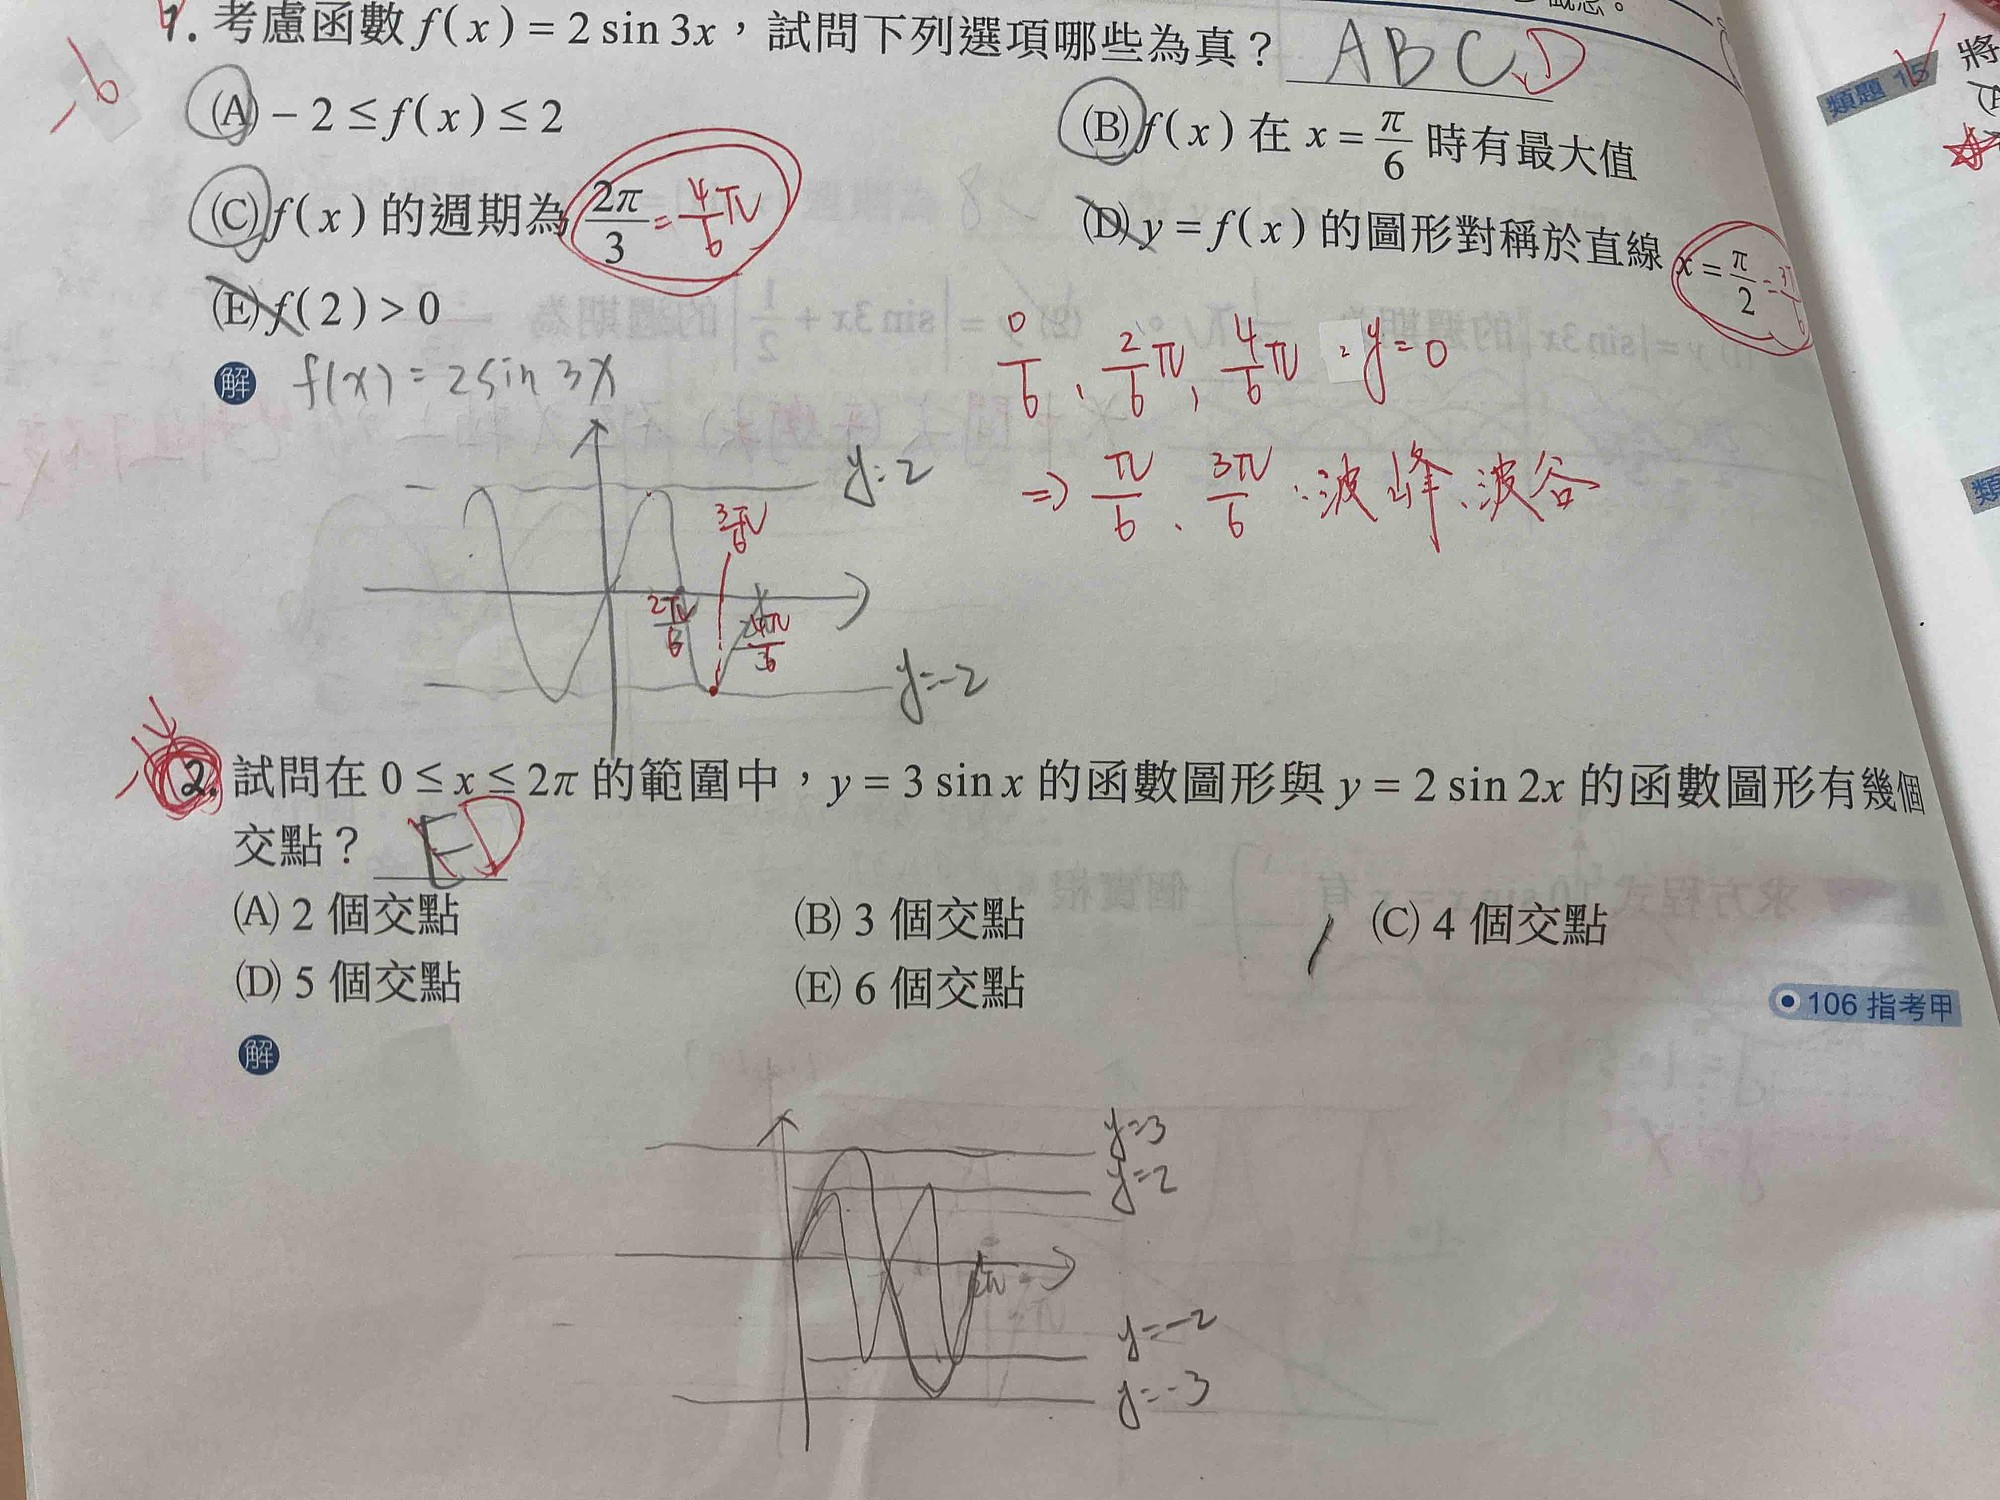 1. 考慮函數 f(x) = 2 sin 3x，試問下列選項哪些為真？ ABCD
-6
(A) -2 ≤ f(x) ≤ 2
(B) f(x) 在 x = π/6 時有最大值
(C) f(x) 的週期為 2π/3 = 4/6 π
(D) y = f(x) 的圖形對稱於直線 x = π/2 = 3π/6
(E) f(2) > 0
解 f(x) = 2sin 3x
0/6、2/6 π、4/6 π : y=0
⇒ π/6、3π/6 : 波峰、波谷
y=2
3π/6
2π/6
4π/6
y=-2
2. 試問在 0 ≤ x ≤ 2π 的範圍中，y = 3 sin x 的函數圖形與 y = 2 sin 2x 的函數圖形有幾個
交點？ ED
(A) 2 個交點
(B) 3 個交點
(C) 4 個交點
(D) 5 個交點
(E) 6 個交點
106 指考甲
解
y=3
y=2
2π
y=-2
y=-3
類題 15
將
類